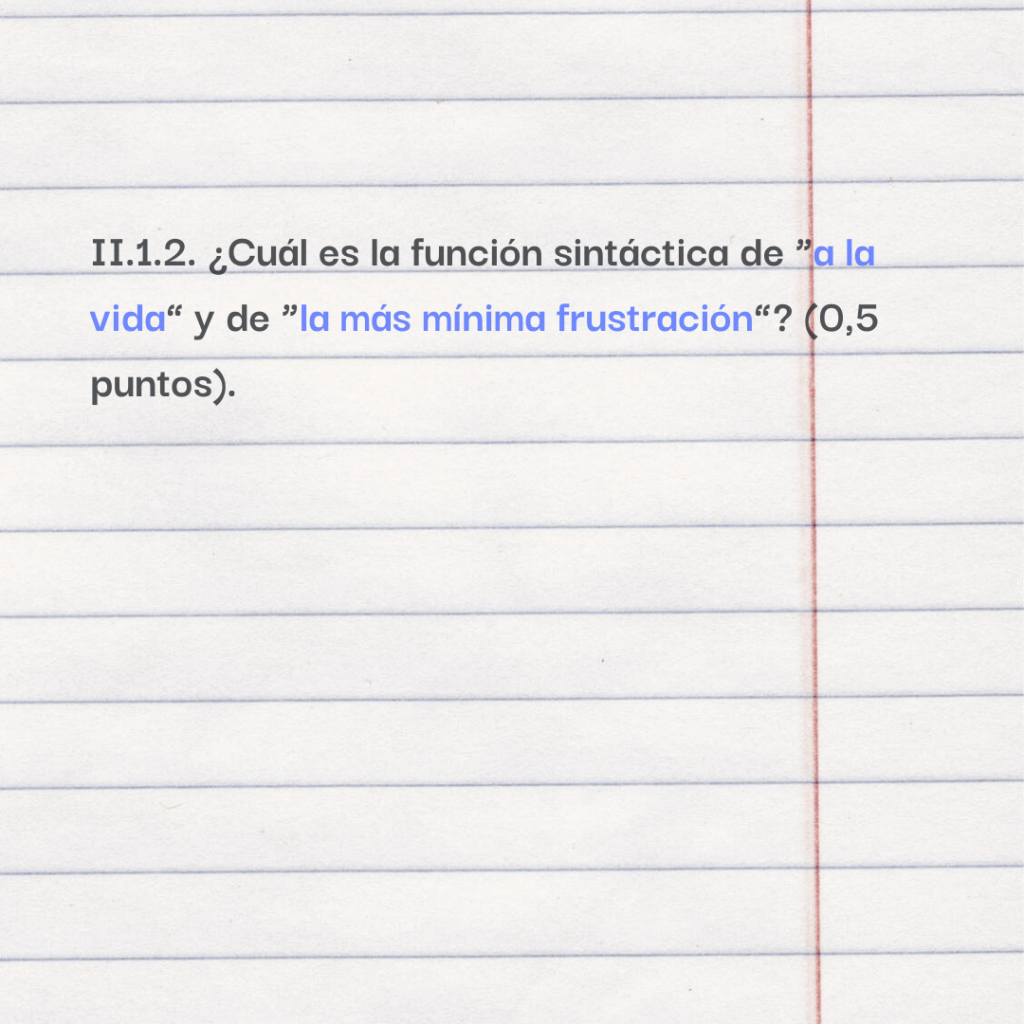 II.1.2. ¿Cuál es la función sintáctica de ”a la
vida“ y de ”la más mínima frustración“? (0,5
puntos).